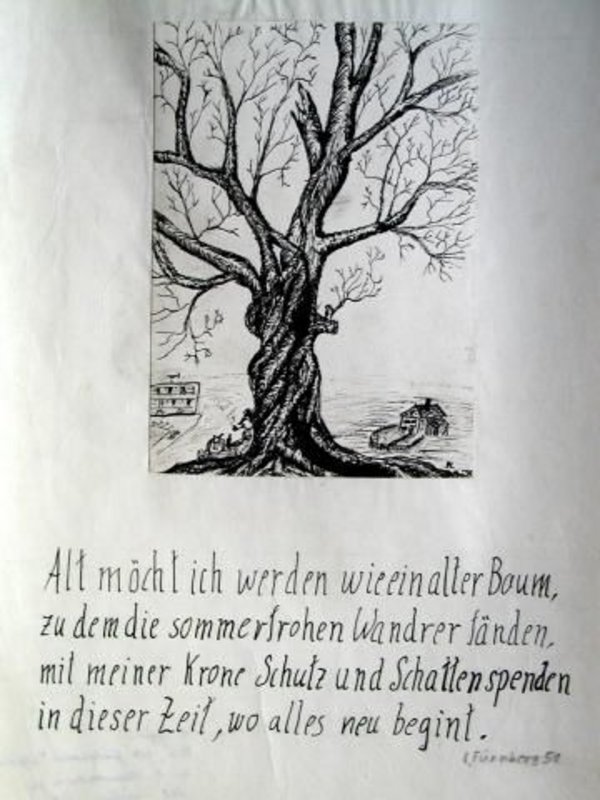 Alt möcht ich werden wie ein alter Baum,
zu dem die sommerfrohen Wandrer fänden,
mit meiner Krone Schutz und Schatten spenden
in dieser Zeit, wo alles neu begint.
L. Fürnberg 51